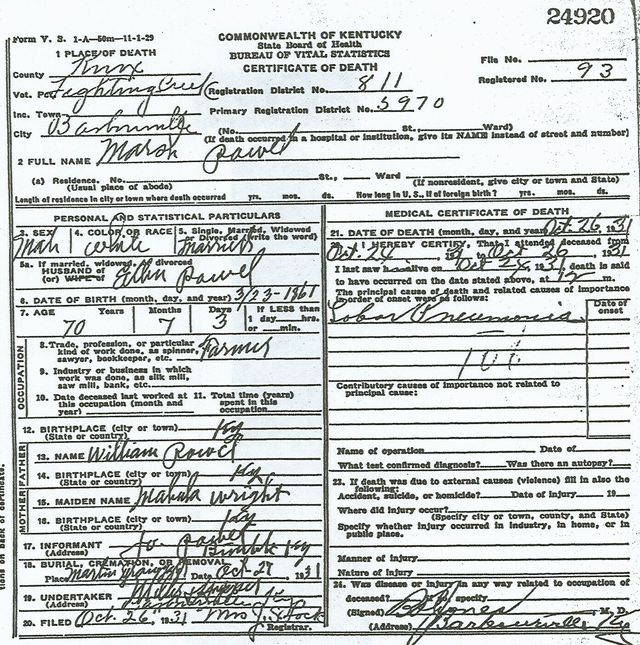 24920
Form V. S. 1-A—50m—11-1-29
COMMONWEALTH OF KENTUCKY
State Board of Health
BUREAU OF VITAL STATISTICS
CERTIFICATE OF DEATH
File No.
Registered No. 93
1 PLACE OF DEATH
County Knox
Vot. Pct. Fighting Creek Registration District No. 811
Inc. Town Primary Registration District No. 5970
City Barbourville (No. St., Ward)
(If death occurred in a hospital or institution, give its NAME instead of street and number)
2 FULL NAME Marsh Powel
(a) Residence. No. St., Ward
(Usual place of abode) (If nonresident, give city or town and State)
Length of residence in city or town where death occurred yrs. mos. ds. How long in U. S., if of foreign birth? yrs. mos. ds.
PERSONAL AND STATISTICAL PARTICULARS
3. SEX 4. COLOR OR RACE 5. Single, Married, Widowed or Divorced (write the word)
Male white Married
5a. If married, widowed, or divorced
HUSBAND of
(or) WIFE of Powel
6. DATE OF BIRTH (month, day, and year) 3/23-1861
7. AGE Years Months Days If LESS than 1 day hrs. or min.
70 7 3
OCCUPATION
8. Trade, profession, or particular
kind of work done, as spinner, Farmer
sawyer, bookkeeper, etc.
9. Industry or business in which
work was done, as silk mill,
saw mill, bank, etc.
10. Date deceased last worked at 11. Total time (years)
this occupation (month and spent in this
year) occupation
12. BIRTHPLACE (city or town)
(State or country) Ky
FATHER
13. NAME William Powel
14. BIRTHPLACE (city or town)
(State or country) Ky
MOTHER
15. MAIDEN NAME Mahala Wright
16. BIRTHPLACE (city or town)
(State or country) Ky
17. INFORMANT Jo Powel
(Address) Bimble Ky
18. BURIAL, CREMATION, OR REMOVAL
Place Martin Date Oct-27 1931
19. UNDERTAKER
(Address) Barbourville Ky
20. FILED Oct. 26, 1931 Mrs
Registrar.
MEDICAL CERTIFICATE OF DEATH
21. DATE OF DEATH (month, day, and year) Oct. 26 1931
22. I HEREBY CERTIFY, That I attended deceased from
Oct. 24 1931 to Oct 26 1931
I last saw him alive on Oct 1931, death is said
to have occurred on the date stated above, at 12 m.
The principal cause of death and related causes of importance
in order of onset were as follows: Date of onset
Lobar Pneumonia
Contributory causes of importance not related to
principal cause:
Name of operation Date of
What test confirmed diagnosis? Was there an autopsy?
23. If death was due to external causes (violence) fill in also the
following:
Accident, suicide, or homicide? Date of injury 19
Where did injury occur?
(Specify city or town, county, and State)
Specify whether injury occurred in industry, in home, or in
public place.
Manner of injury
Nature of injury
24. Was disease or injury in any way related to occupation of
deceased? If so, specify
(Signed) Jones M. D.
(Address) Barbourville, Ky
tions on back of certificate.